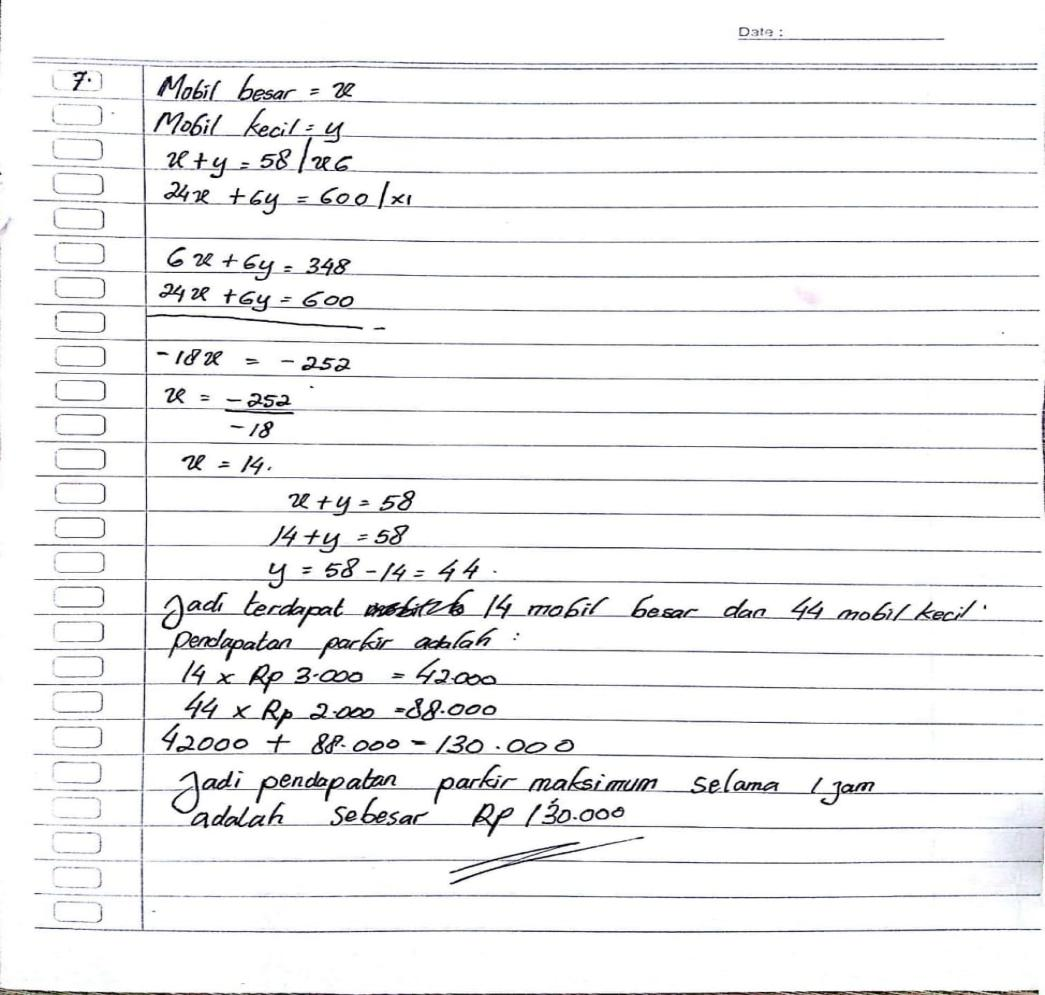 Date :
7.
Mobil besar = x
Mobil kecil = y
x + y = 58 | x6
24x + 6y = 600 | x1
6x + 6y = 348
24x + 6y = 600
-
-18x = -252
x = -252
-18
x = 14.
x + y = 58
14 + y = 58
y = 58 - 14 = 44.
Jadi terdapat 14 mobil besar dan 44 mobil kecil.
Pendapatan parkir adalah :
14 x Rp 3.000 = 42.000
44 x Rp 2.000 = 88.000
42000 + 88.000 = 130.000
Jadi pendapatan parkir maksimum selama 1 jam
adalah sebesar Rp 130.000